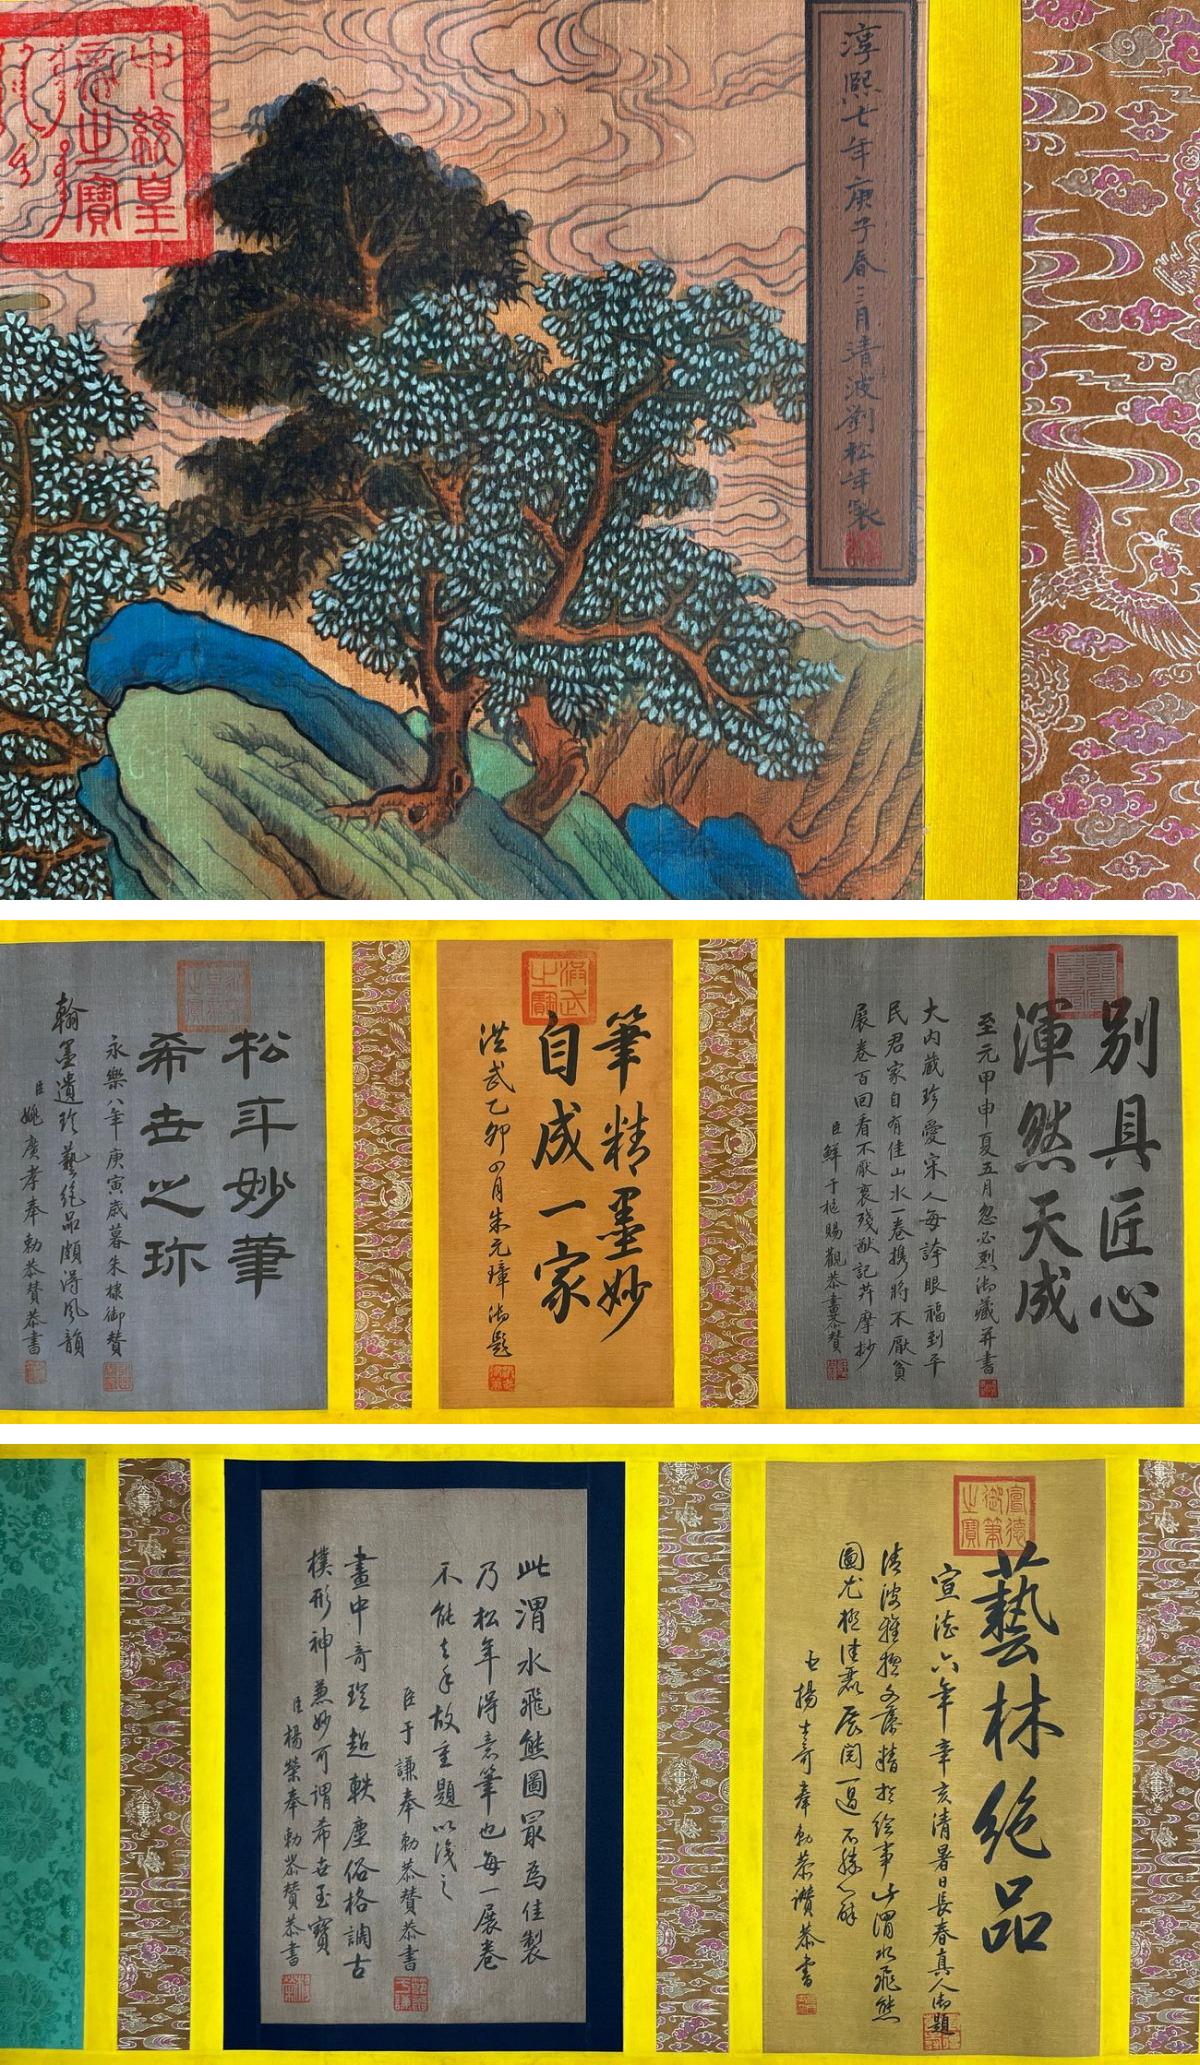 淳熙七年庚子春二月清波劉松年製
別具匠心
渾然天成
至元甲申夏五月忽必烈御藏并書
大內藏珍愛宋人每誇眼福到平
民君家自有佳山水一卷携將不厭貧
展卷百回看不厭裹殘猷記芹摩抄
臣鮮于樞賜觀恭書恭贊
洪武
之寶
筆精墨妙
自成一家
洪武乙卯四月朱元璋御題
松年妙筆
希世之珎
永樂八年庚寅歲暮朱棣御贊
翰墨遺珍藝絕品頗得風韻
臣姚廣孝奉勅恭贊恭書
宣德
御筆
之寶
藝林絕品
宣德六年辛亥清暑日長春真人御題
清波雅擅文藻精於繪事此渭水飛熊
圖尤極佳處展閱一過不勝心醉
臣楊士奇奉勅恭讚恭書
此渭水飛熊圖最為佳製
乃松年得意筆也每一展卷
不能去手故重題以識之
臣于謙奉勅恭贊恭書
畫中奇珵超軼塵俗格調古
樸形神兼妙可謂希世玉寶
臣楊榮奉勅恭贊恭書